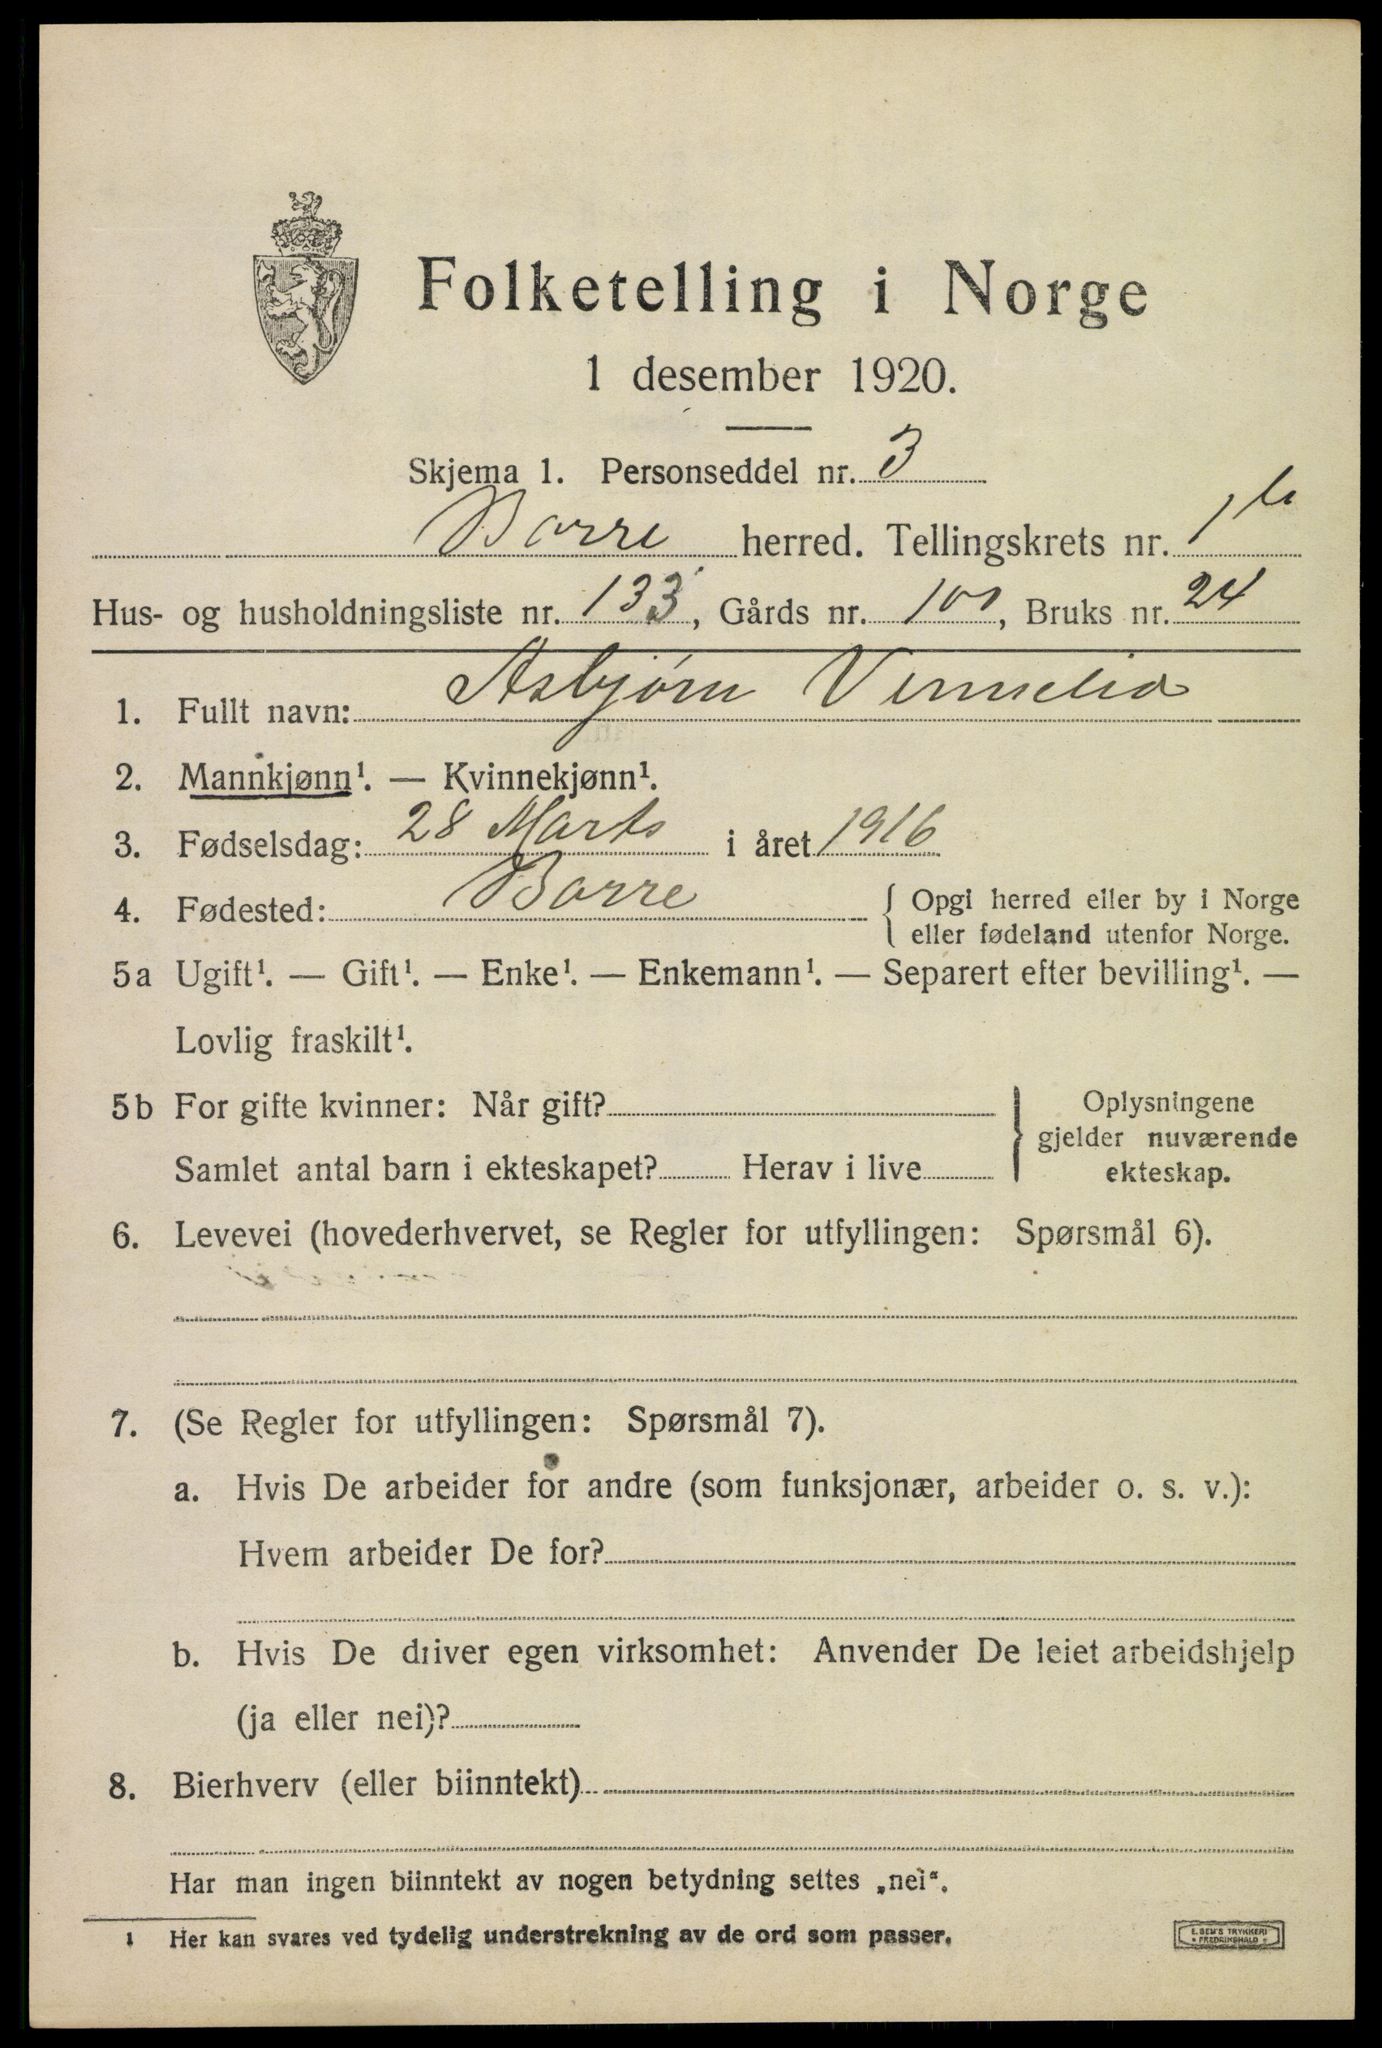 Folketelling i Norge
1 desember 1920.
Skjema 1. Personseddel nr. 3
Borre herred. Tellingskrets nr. 1ste
Hus- og husholdningsliste nr. 133, Gårds nr. 101, Bruks nr. 24
1. Fullt navn: Asbjørn Vinnelid
2. Mannkjønn¹. — Kvinnekjønn¹.
3. Fødselsdag: 28 Marts i året 1916
4. Fødested: Borre { Opgi herred eller by i Norge
eller fødeland utenfor Norge.
5a Ugift¹. — Gift¹. — Enke¹. — Enkemann¹. — Separert efter bevilling¹. —
Lovlig fraskilt¹.
5b For gifte kvinner: Når gift? } Oplysningene
gjelder nuværende
Samlet antal barn i ekteskapet? Herav i live ekteskap.
6. Levevei (hovederhvervet, se Regler for utfyllingen: Spørsmål 6).
7. (Se Regler for utfyllingen: Spørsmål 7).
a. Hvis De arbeider for andre (som funksjonær, arbeider o. s. v.):
Hvem arbeider De for?
b. Hvis De driver egen virksomhet: Anvender De leiet arbeidshjelp
(ja eller nei)?
8. Bierhverv (eller biinntekt)
Har man ingen biinntekt av nogen betydning settes „nei“.
1 Her kan svares ved tydelig understrekning av de ord som passer.
E. SEM'S TRYKKERI
FREDRIKSHALD